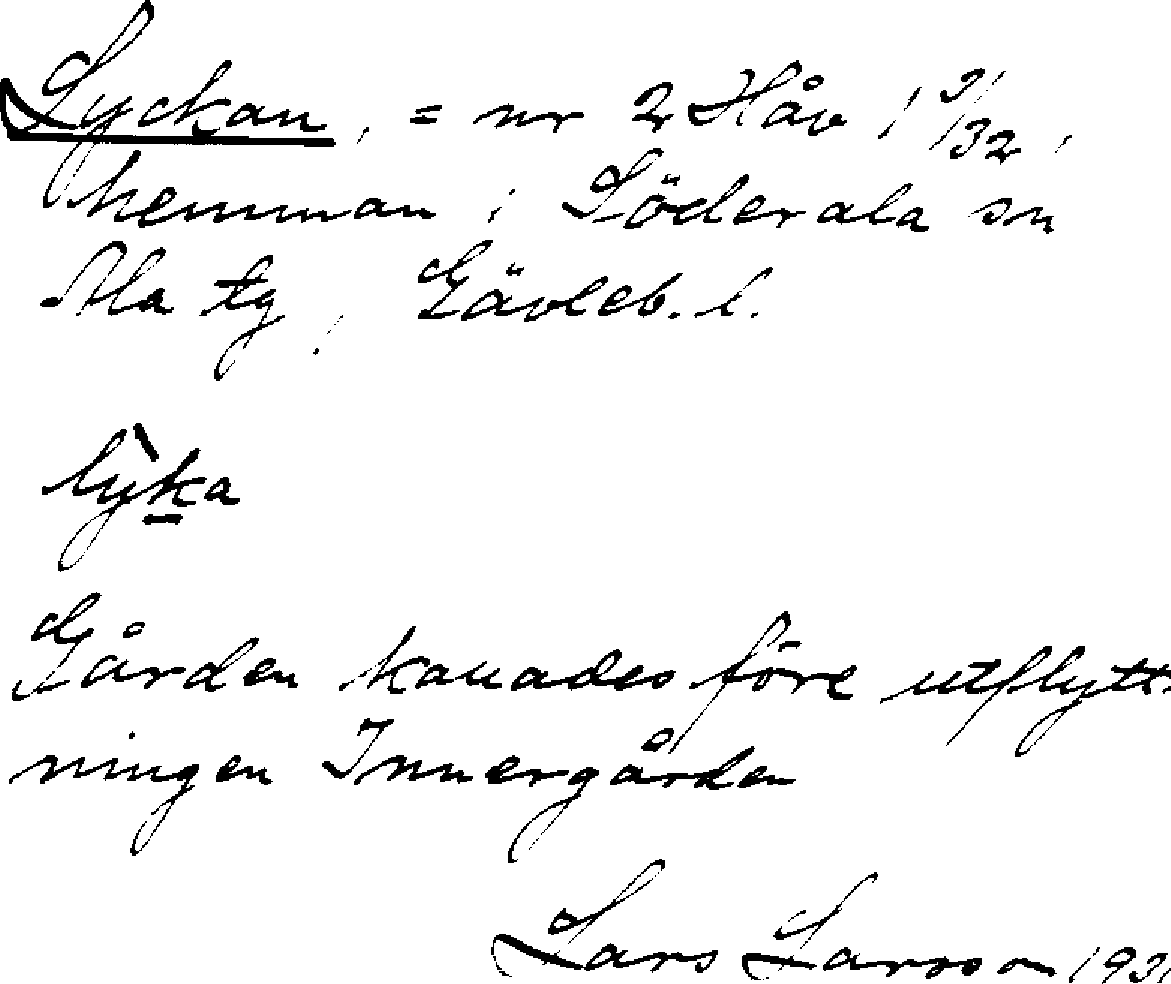 Lyckan, = nr 2 Håv 1 9/32,
hemman i Söderala sn
Ala tg, Gävleb. l.
lỳka
Gården kallades före utflytt-
ningen Innergården
Lars Larsson 193